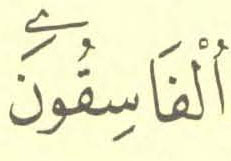 اُلْفَاسِقُونَ